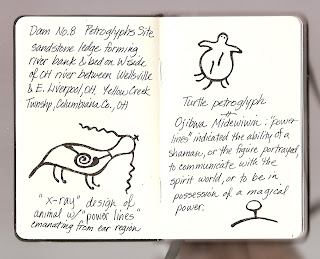 Dam No.8 Petroglyphs Site
sandstone ledge forming
river bank & bed on W side
of OH river between Wellsville
& E. Liverpool, OH. Yellow Creek
Twnshp, Columbiana Co., OH
"x-ray" design of
animal w/ "power lines"
emanating from ear region
Turtle petroglyph
Ojibwa Midewiwin: "power
lines" indicated the ability of a
shaman, or the figure portrayed,
to communicate with the
spirit world, or to be in
possession of a magical
power.